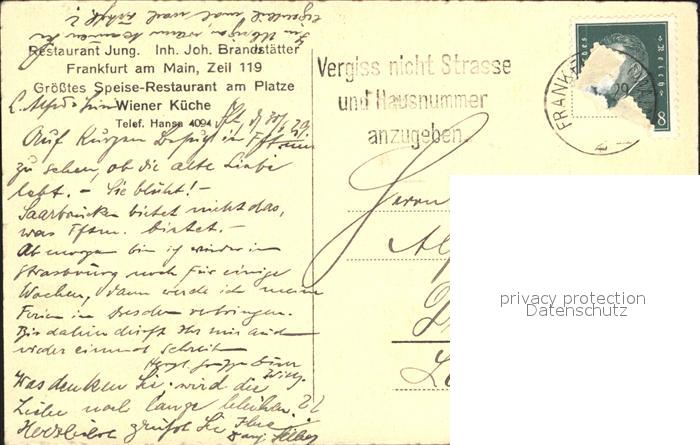 Restaurant Jung. Inh. Joh. Brandstätter
Frankfurt am Main, Zeil 119
Größtes Speise-Restaurant am Platze
Wiener Küche
Telef. Hansa 4094
Auf kurzen Besuch in
zu sehen, ob die alte Liebe
lebt. - Sie blüht! -
Saarbrücken bietet nicht das,
was Ffm. bietet. -
Ab morgen bin ich wieder in
Strasbourg noch für einige
Wochen, dann werde ich meine
Ferien in Dresden verbringen.
Bis dahin dürft Ihr mir auch
wieder einmal schreiben
Herzl. Grüsse Euer
Willy.
Was denken Sie, wird die
Liebe noch lange blühen?
Herzlichst grüßt Sie Ihre
Vergiss nicht Strasse
und Hausnummer
anzugeben
FRANKFURT
29
8
Herrn
privacy protection
Datenschutz